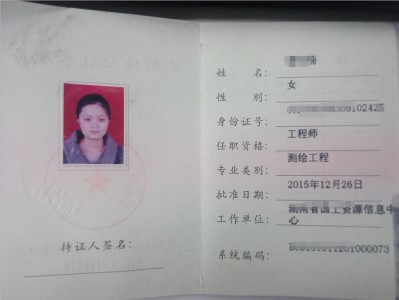 姓 名：
性 别： 女
身份证号：
任职资格： 工程师
专业类别： 测绘工程
批准日期： 2015年12月26日
工作单位： 湖南省国土资源信息中
心
系统编码：
持证人签名：